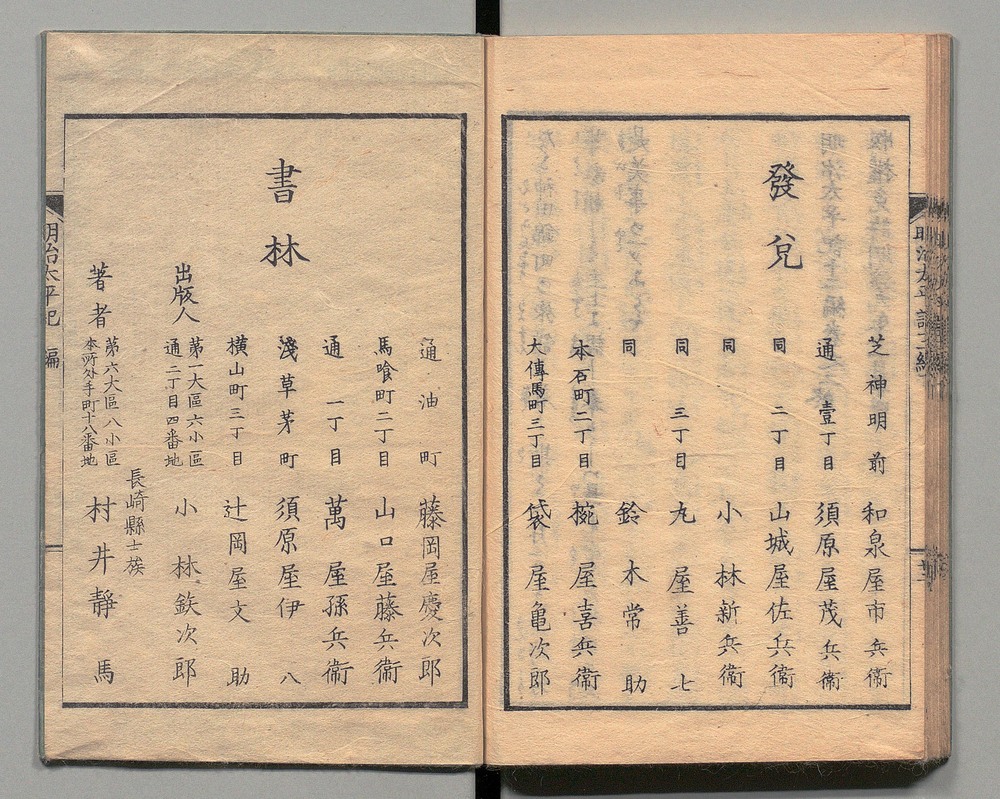 發兌
芝神明前 和泉屋市兵衞
通壹丁目 須原屋茂兵衞
同 二丁目 山城屋佐兵衞
同 小林新兵衞
同 三丁目 丸屋善七
同 鈴木常助
本石町二丁目 椀屋喜兵衞
大傳馬町三丁目 袋屋亀次郎
書林
通油町 藤岡屋慶次郎
馬喰町二丁目 山口屋藤兵衞
通一丁目 萬屋孫兵衞
淺草茅町 須原屋伊八
橫山町三丁目 辻岡屋文助
出版人
第一大區六小區
通二丁目四番地
小林鉄次郎
長崎縣士族
著者
第六大區八小區
本所外手町十八番地
村井靜馬
明治太平記 編